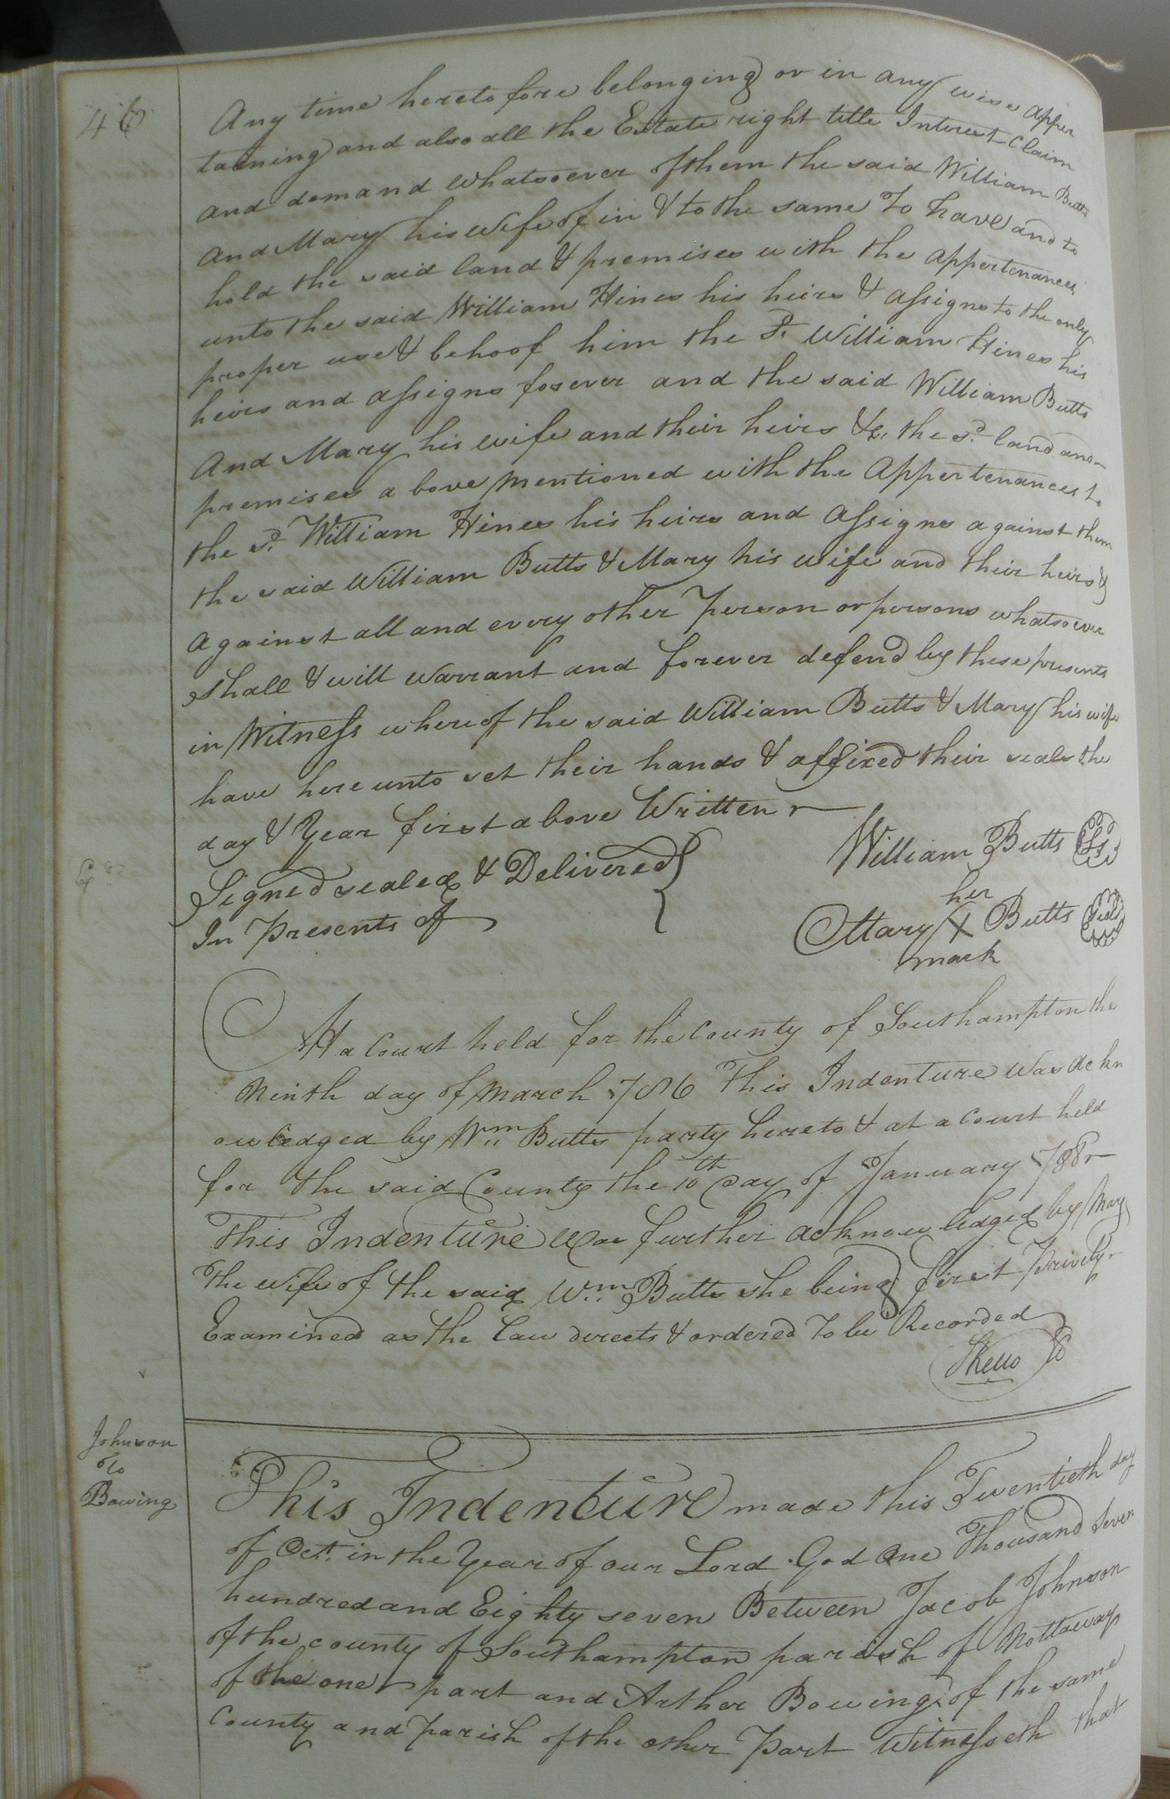 46
Any time heretofore belonging or in any wise apper
taining and also all the Estate right title Interest Claim
and demand whatsoever of them the said William Butts
and Mary his wife of in & to the same To have and to
hold the said land & premises with the appertenances
unto the said William Hines his heirs & assigns to the only
proper use & behoof him the sd. William Hines his
heirs and assigns forever and the said William Butts
And Mary his wife and their heirs &c. the sd. land and
premises above mentioned with the Appertenances to
the sd. William Hines his heirs and Assigns against them
the said William Butts & Mary his wife and their heirs &
against all and every other person or persons whatsoever
shall & will warrant and forever defend by these presents
in Witness whereof the said William Butts & Mary his wife
have here unto set their hands & affixed their seals the
day & Year first above Written
Signed sealed & Delivered
In Presents of
William Butts LS
her
Mary X Butts Seal
mark
At a Court held for the County of Southampton the
Ninth day of March 1786 This Indenture was ackn
owledged by Wm Butts party hereto & at a Court held
for the said County the 10th day of January 1788
This Indenture was further acknowledged by Mary
the wife of the said Wm Butts she being first Privily
Examined as the law directs & ordered to be Recorded
Johnson
to
Bowing
This Indenture made this Twentieth day
of Oct. in the Year of our Lord God One Thousand Seven
hundred and Eighty seven Between Jacob Johnson
of the county of Southampton parish of Nottoway
of the one part and Arther Bowing of the same
County and Parish of the other Part Witnesseth that